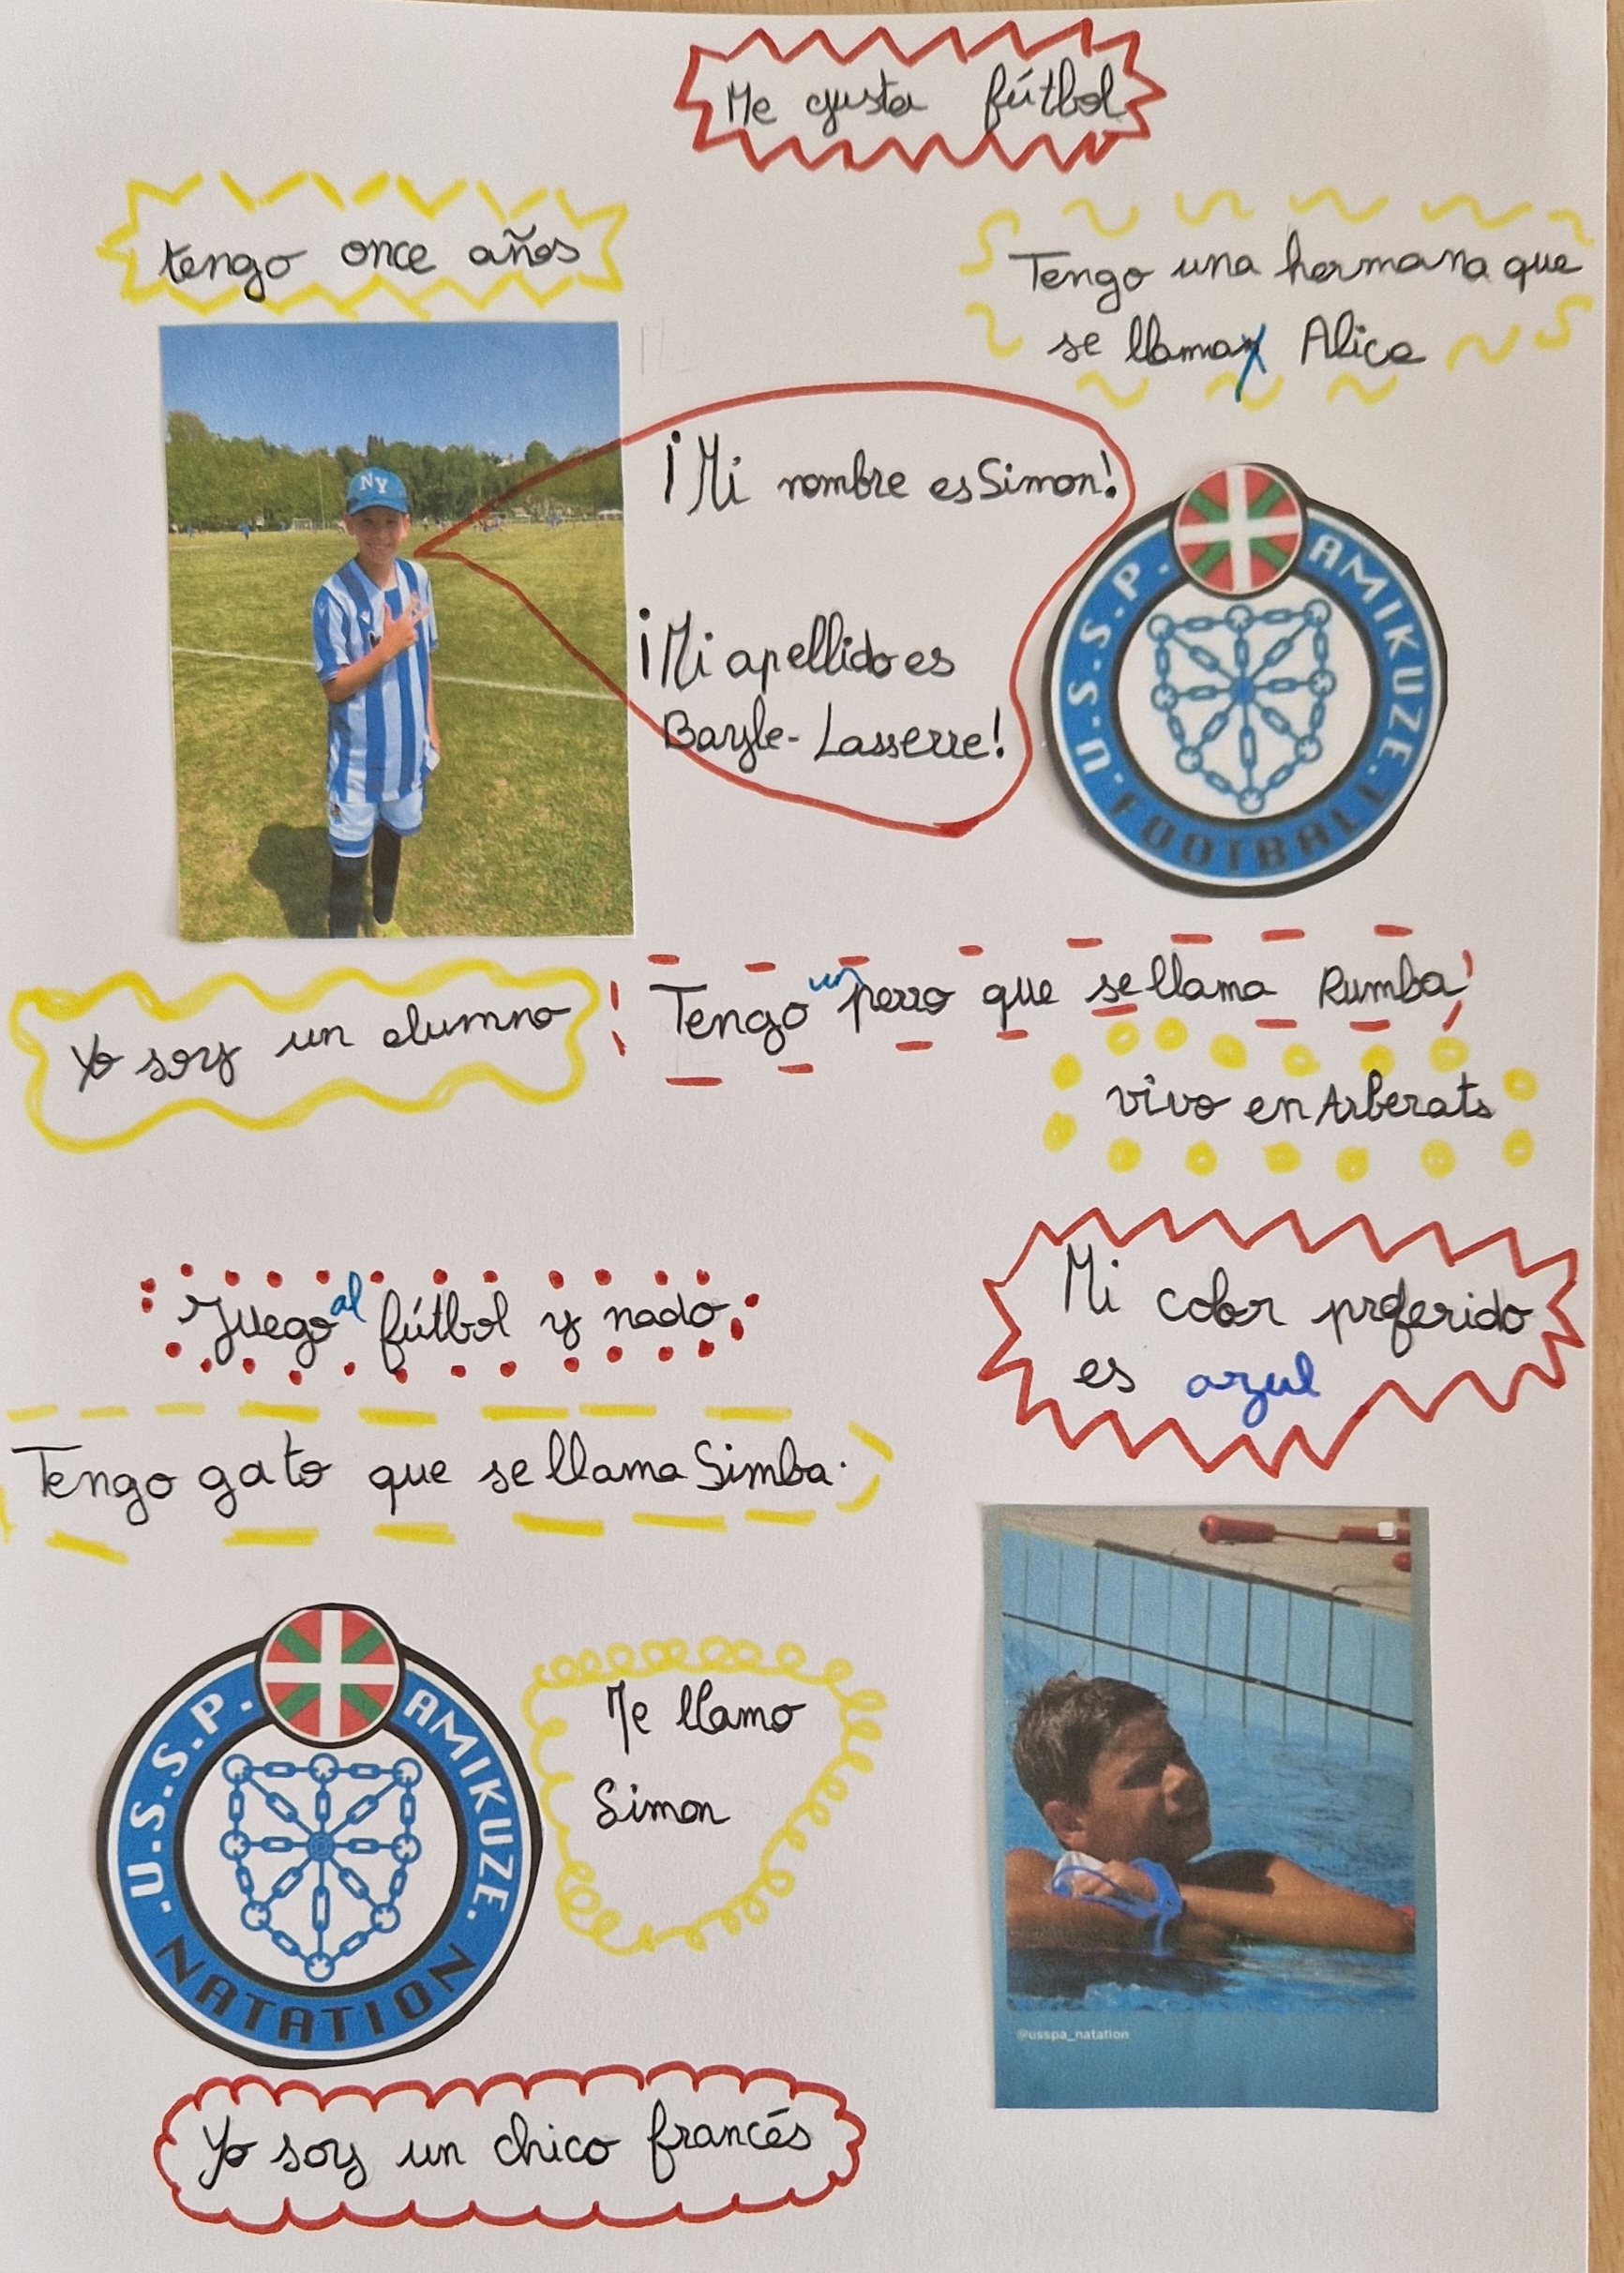 Me gusta fútbol
tengo once años
Tengo una hermana que
se llama Alice
NY
¡Mi nombre es Simon!
¡Mi apellido es
Bayle-Lasserre!
U.S.S.P. AMIKUZE.
FOOTBALL
Yo soy un alumno
Tengo un perro que se llama Rumba!
vivo en Arberats
Juego al fútbol y nado.
Mi color preferido
es azul
Tengo gato que se llama Simba.
U.S.S.P. AMIKUZE.
NATATION
Me llamo
Simon
@usspa_natation
Yo soy un chico francés